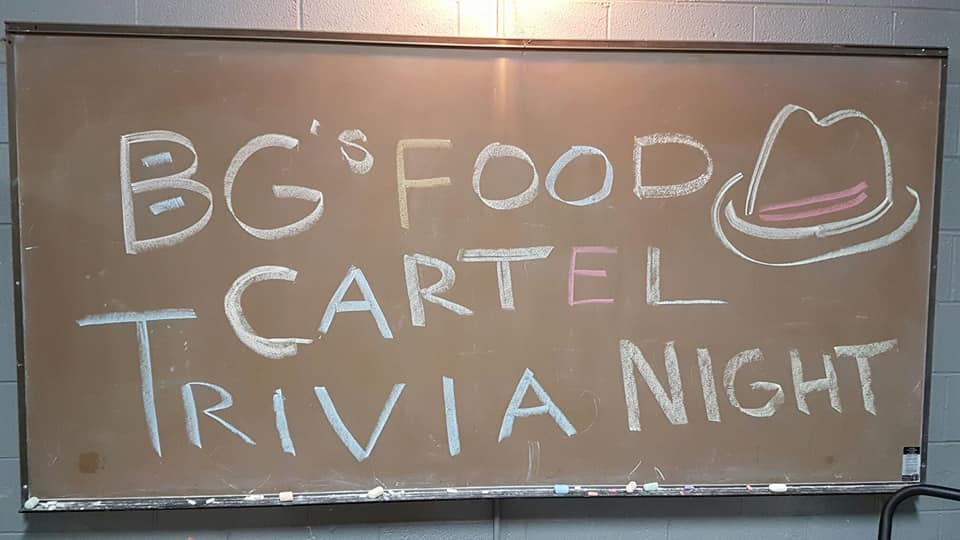 BG's FOOD
CARTEL
TRIVIA NIGHT